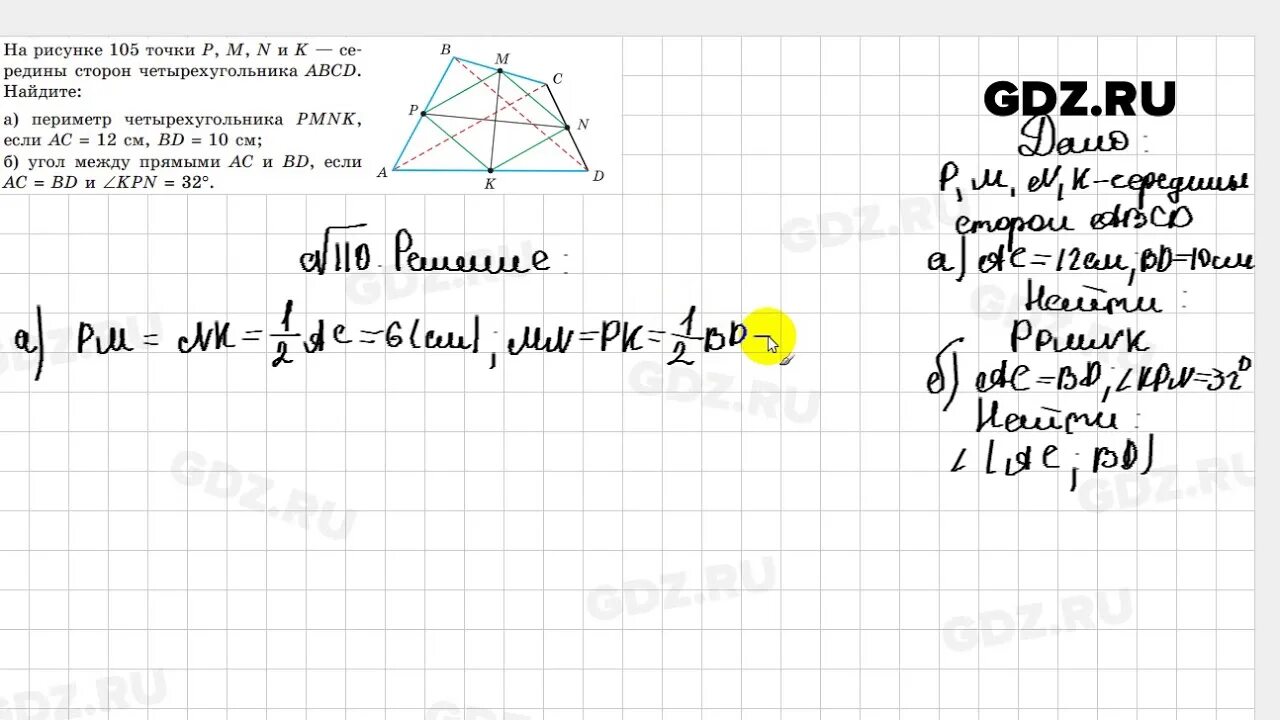 На рисунке 105 точки P, M, N и K — се-
редины сторон четырехугольника ABCD.
Найдите:
а) периметр четырехугольника PMNK,
если AC = 12 см, BD = 10 см;
б) угол между прямыми AC и BD, если
AC = BD и ∠KPN = 32°.
B
M
C
P
N
A
K
D
GDZ.RU
Дано:
P, M, N, K – середины
сторон ABCD
а) AC = 12 см, BD = 10 см
Найти:
PPMNK
б) AC = BD, ∠KPN = 32°
Найти:
∠(AC; BD)
√110. Решение:
а) PM = NK = 1/2 AC = 6 (см); MN = PK = 1/2 BD =
GDZ.RU
GDZ.RU
GDZ.RU
GDZ.RU
GDZ.RU
GDZ.RU
GDZ.RU